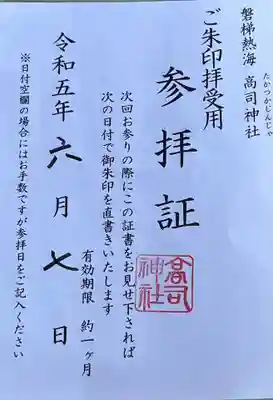 磐梯熱海 高司神社
たかつかじんじゃ
ご朱印拝受用
参拝証
次回お参りの際にこの証書をお見せ下されば
次の日付で御朱印を直書きいたします
有効期限 約一ヶ月
高司神社
令和五年 六月 七日
※日付空欄の場合にはお手数ですが参拝日をご記入ください